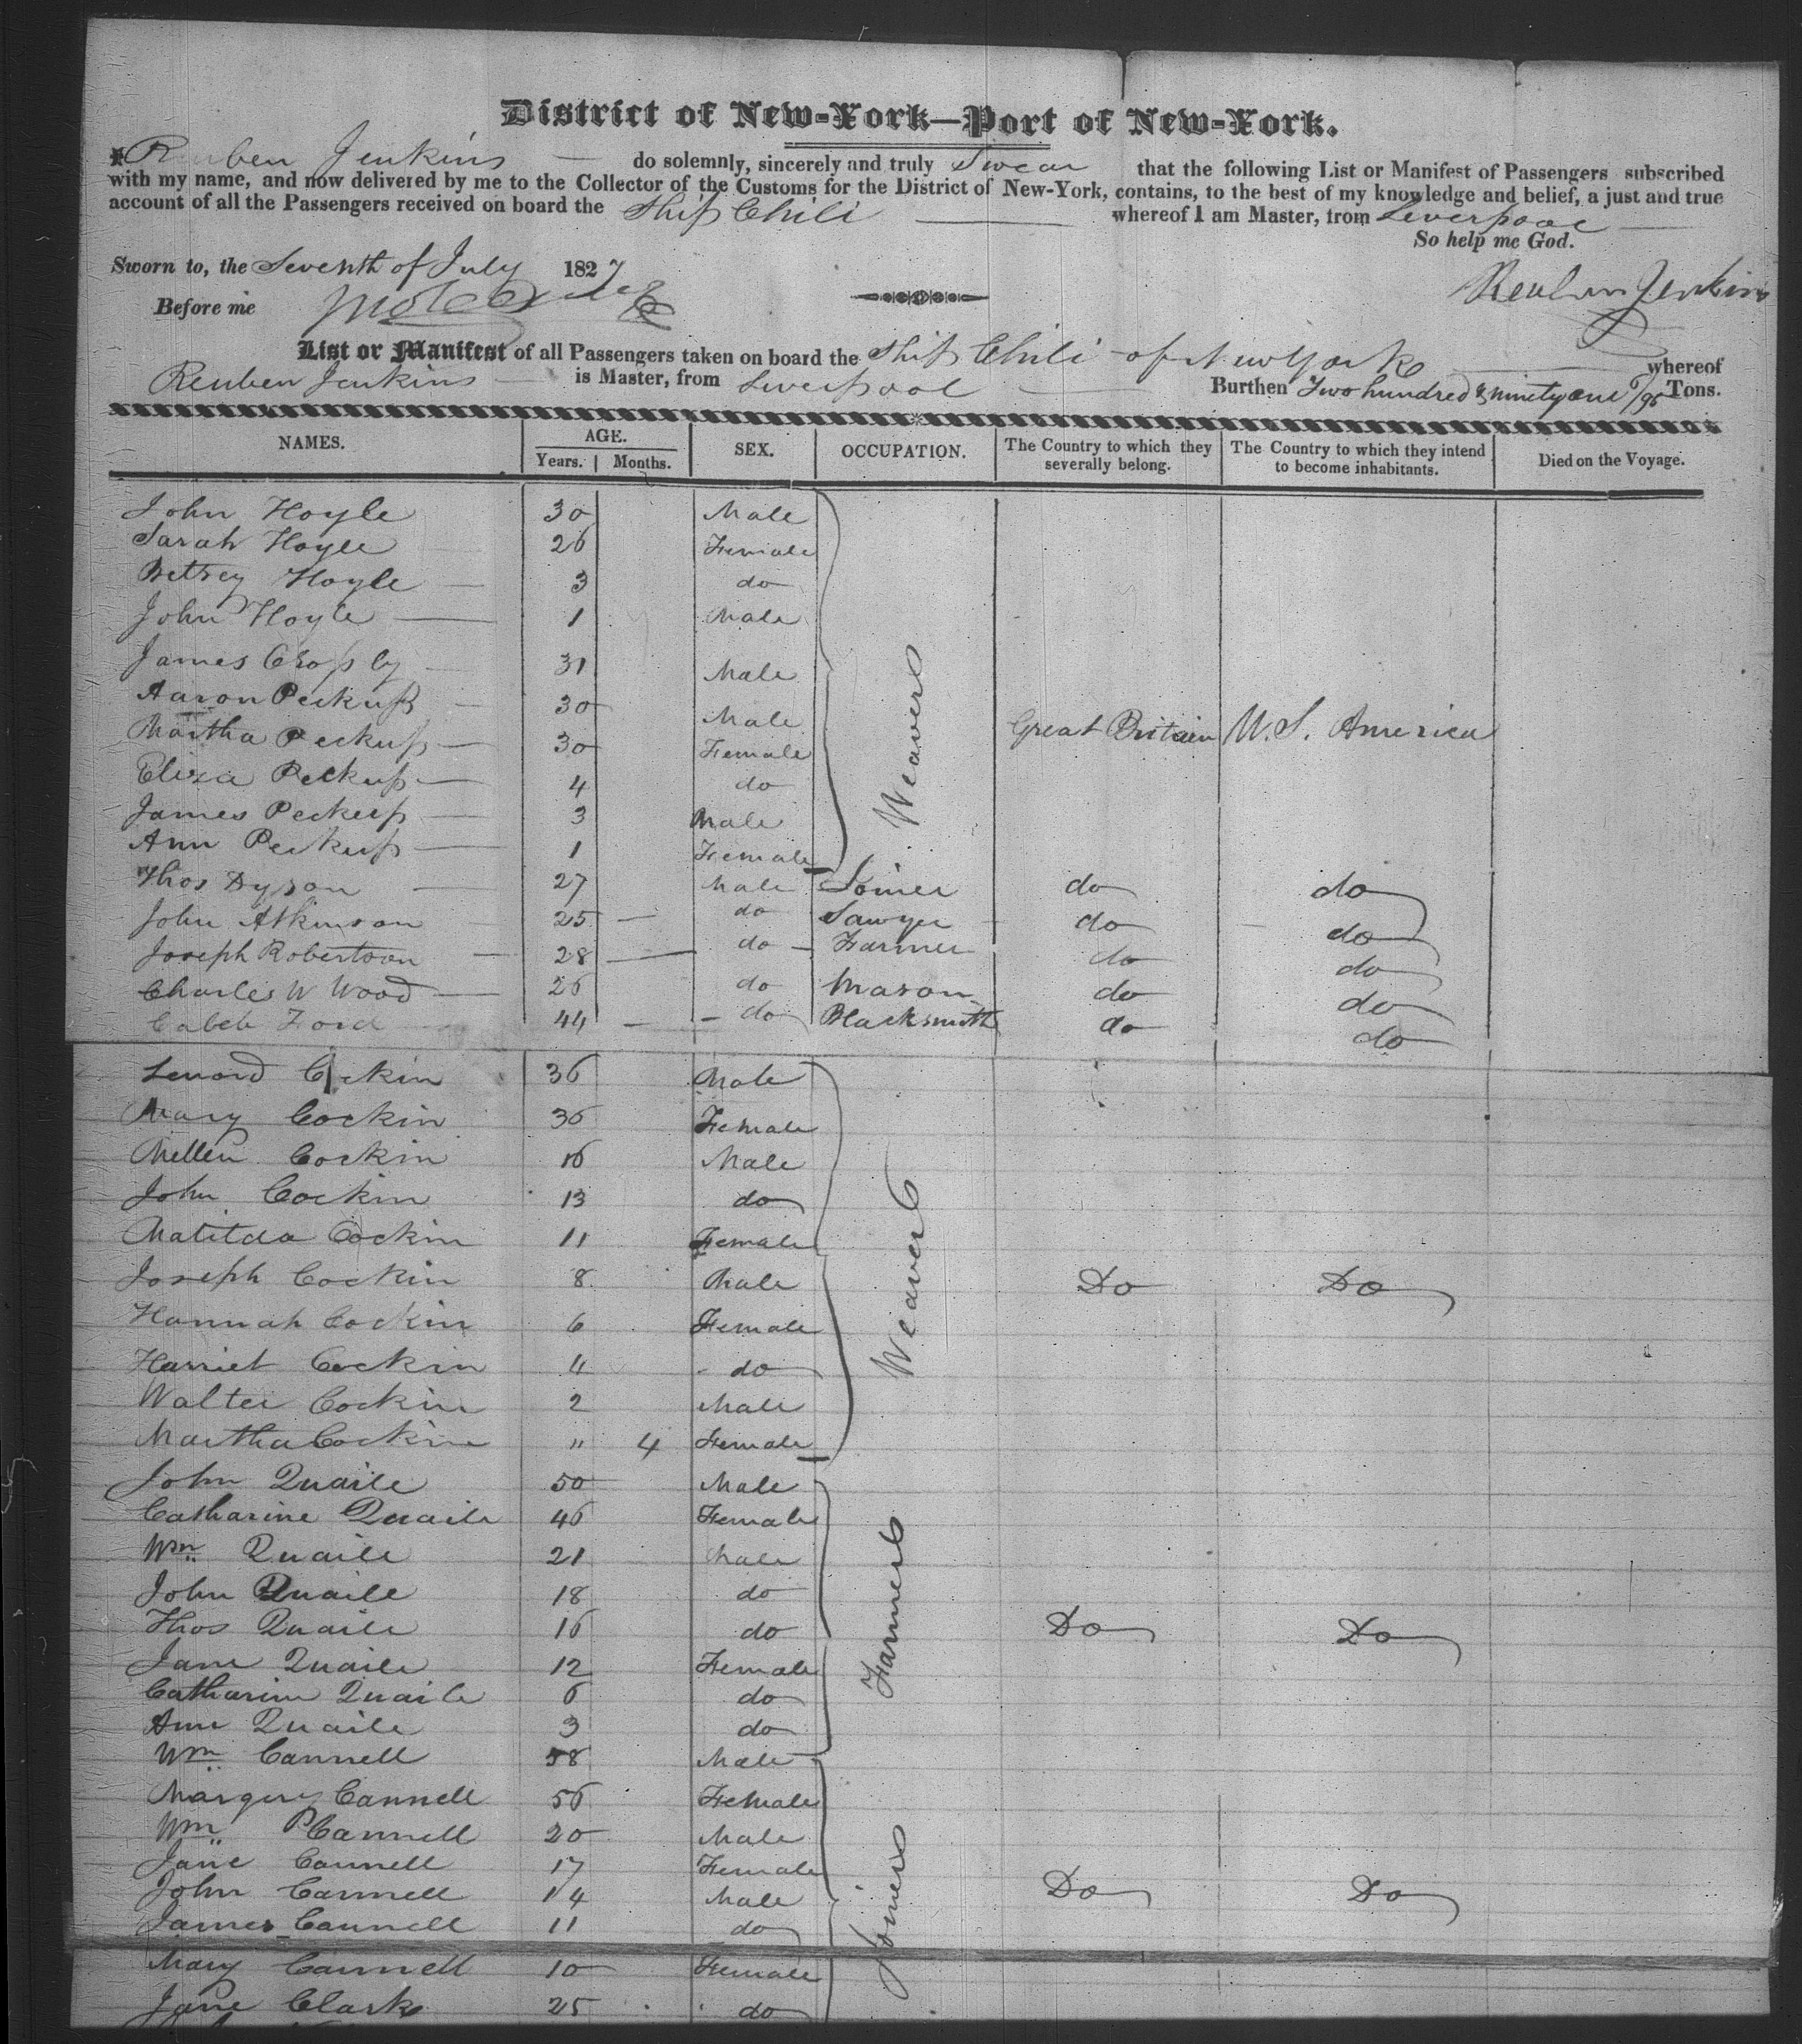 District of New-York—Port of New-York.
I Reuben Jenkins — do solemnly, sincerely and truly Swear that the following List or Manifest of Passengers subscribed
with my name, and now delivered by me to the Collector of the Customs for the District of New-York, contains, to the best of my knowledge and belief, a just and true
account of all the Passengers received on board the Ship Chili — whereof I am Master, from Liverpool —
So help me God.
Sworn to, the Seventh of July 1827
Reuben Jenkins
Before me
List or Manifest of all Passengers taken on board the Ship Chili of New York — whereof
Reuben Jenkins — is Master, from Liverpool — Burthen Two hundred & ninety one /95 Tons.
NAMES. AGE. SEX. OCCUPATION. The Country to which they severally belong. The Country to which they intend to become inhabitants. Died on the Voyage.
Years. Months.
John Hoyle 30 Male
Sarah Hoyle 26 Female
Betsey Hoyle — 3 do
John Hoyle — 1 Male
James Crossly — 31 Male
Aaron Peckup — 30 Male
Martha Peckup — 30 Female
Weavers Great Britain U.S. America
Eliza Peckup — 4 do
James Peckup — 3 Male
Ann Peckup — 1 Female
Thos Dyson — 27 Male Joiner do do
John Atkinson — 25 — do Sawyer do do
Joseph Robertson — 28 — do — Farmer do do
Charles W Wood — 26 do Mason do do
Caleb Ford 44 — do Blacksmith do do
Lenord Cockin 36 Male
Mary Cockin 36 Female
Mellen Cockin 16 Male
John Cockin 13 do
Matilda Cockin 11 Female
Joseph Cockin 8 Male Weavers Do Do
Hannah Cockin 6 Female
Harriet Cockin 4 do
Walter Cockin 2 Male
Martha Cockin " 4 Female
John Quaile 50 Male
Catharine Quaile 46 Female
Wm Quaile 21 Male
John Quaile 18 do
Thos Quaile 16 do Farmers Do Do
Jane Quaile 12 Female
Catharine Quaile 6 do
Ann Quaile 3 do
Wm Cannell 58 Male
Margery Cannell 56 Female
Wm P Cannell 20 Male
Jane Cannell 17 Female
John Cannell 14 Male Do Do
James Cannell 11 do
Mary Cannell 10 Female
Jane Clark 25 do